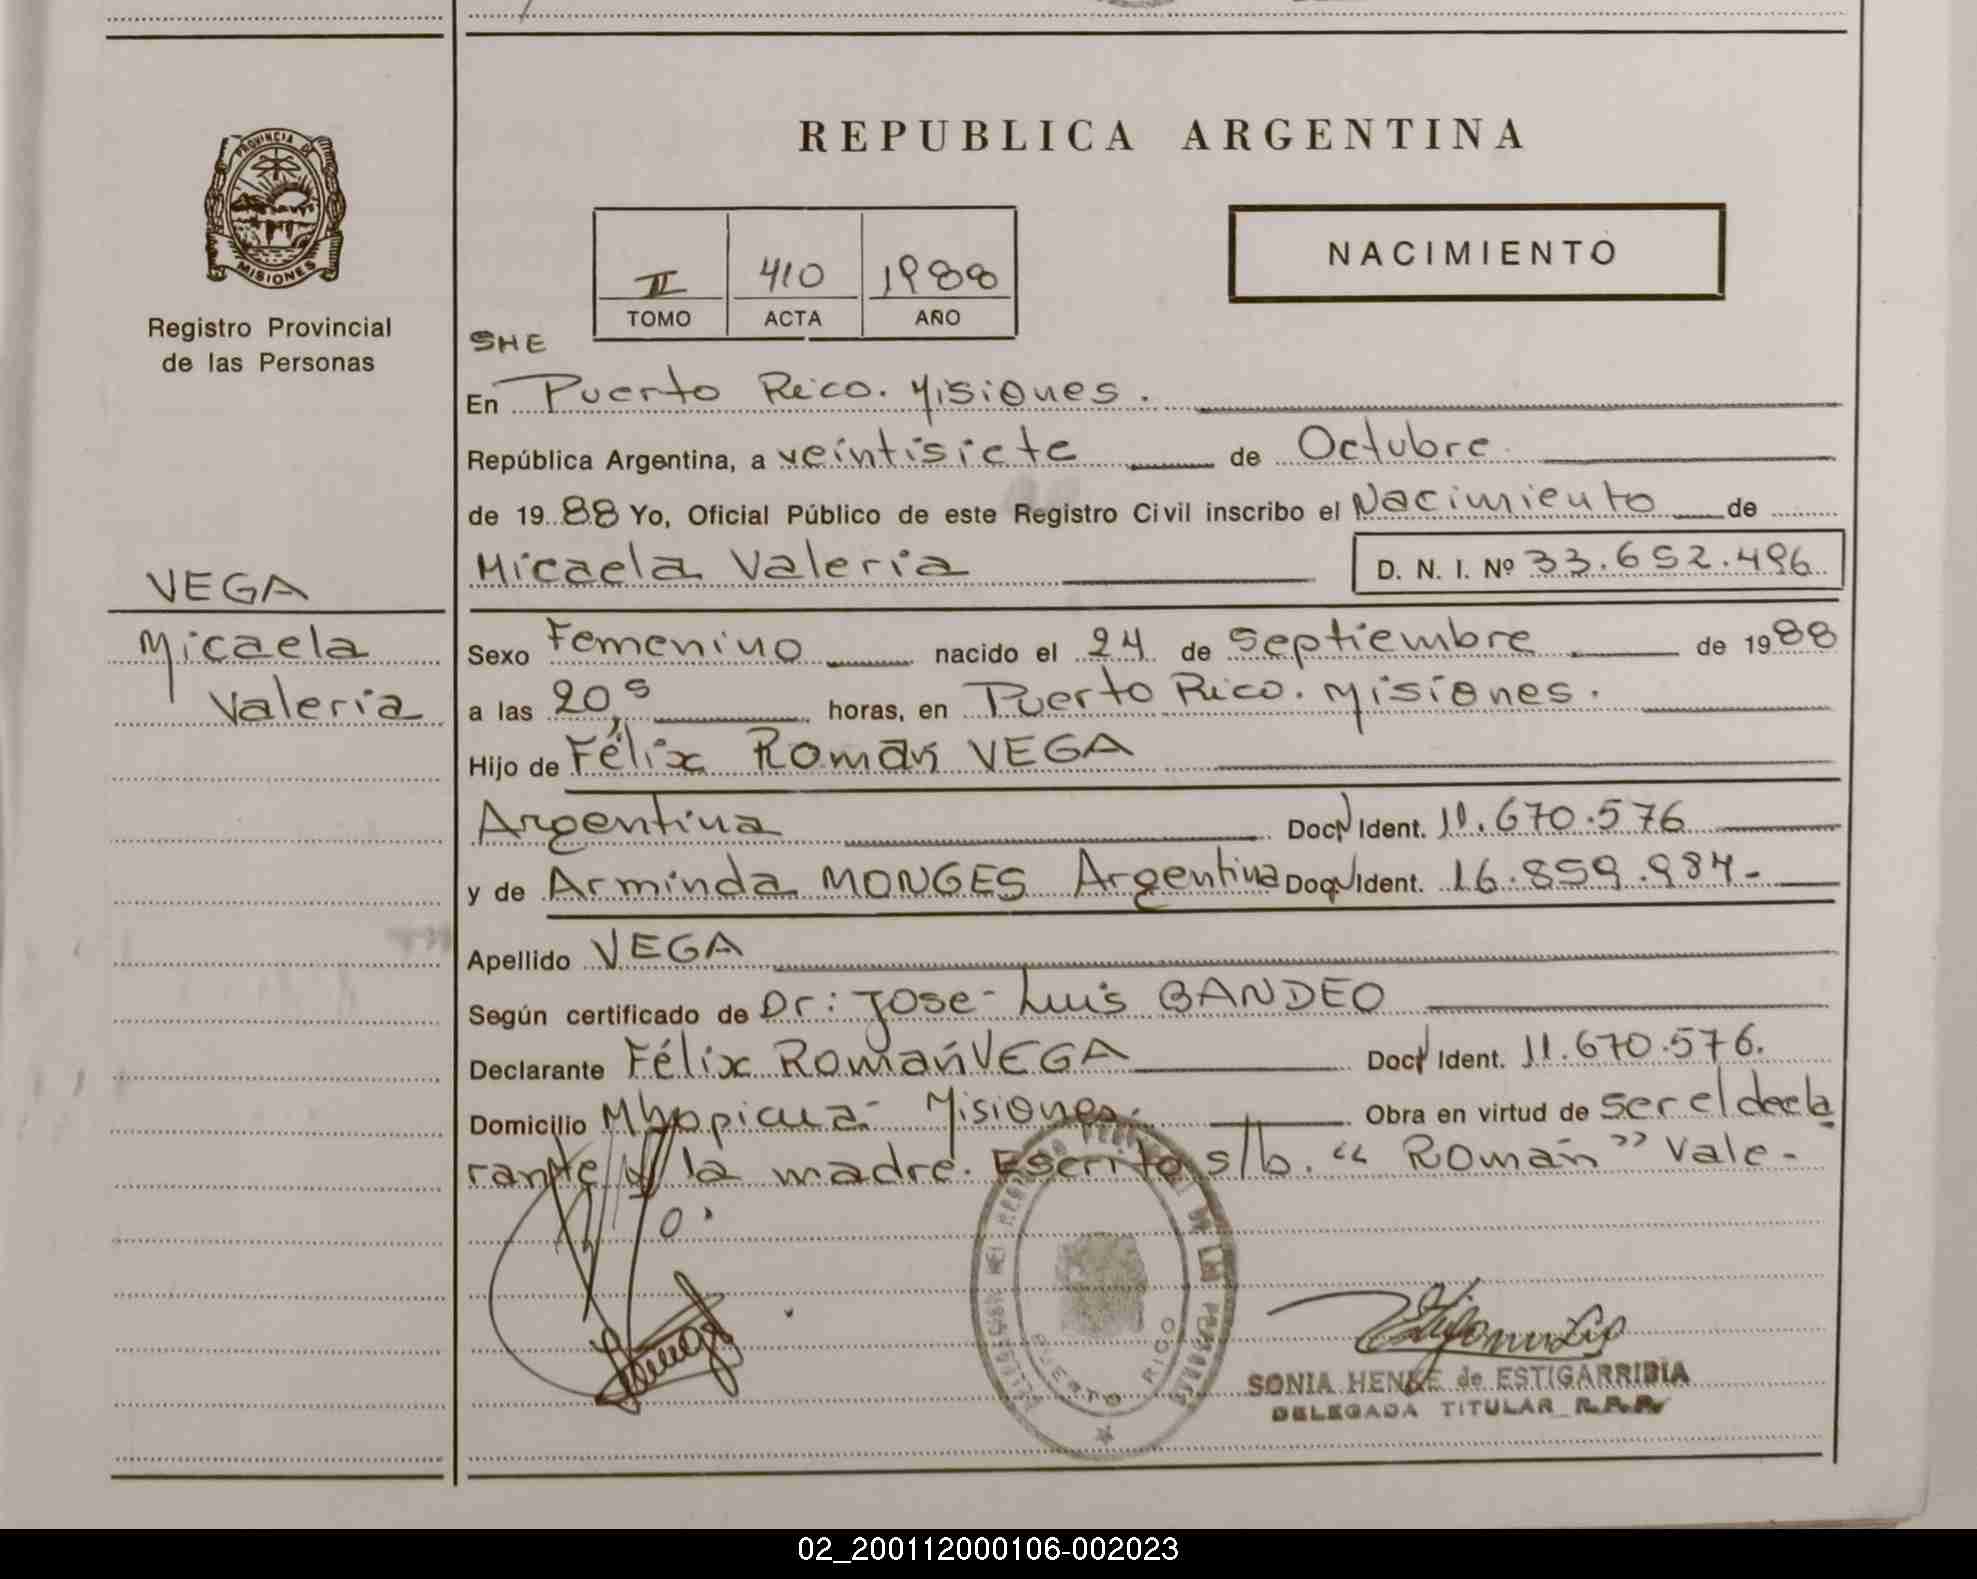 REPUBLICA ARGENTINA
PROVINCIA DE
MISIONES
Registro Provincial
de las Personas
NACIMIENTO
II 410 1988
TOMO ACTA AÑO
SHE
En Puerto Rico. Misiones.
República Argentina, a veintisiete de Octubre
de 1988 Yo, Oficial Público de este Registro Civil inscribo el Nacimiento de
Micaela Valeria D. N. I. Nº 33.652.496
VEGA
Micaela
Valeria
Sexo Femenino nacido el 24 de Septiembre de 1988
a las 20,5 horas, en Puerto Rico. Misiones.
Hijo de Félix Román VEGA
Argentina Doc. Ident. 11.670.576
y de Arminda MONGES Argentina Doc. Ident. 16.859.984-
Apellido VEGA
Según certificado de Dr: Jose-Luis BANDEO
Declarante Félix Román VEGA Doc. Ident. 11.670.576.
Domicilio Mbopicua- Misiones. Obra en virtud de ser el decla
rante y la madre. Escrito s/b. "Román" Vale-
PUERTO RICO
SONIA HENKE de ESTIGARRIBIA
DELEGADA TITULAR R.P.P.
02_200112000106-002023